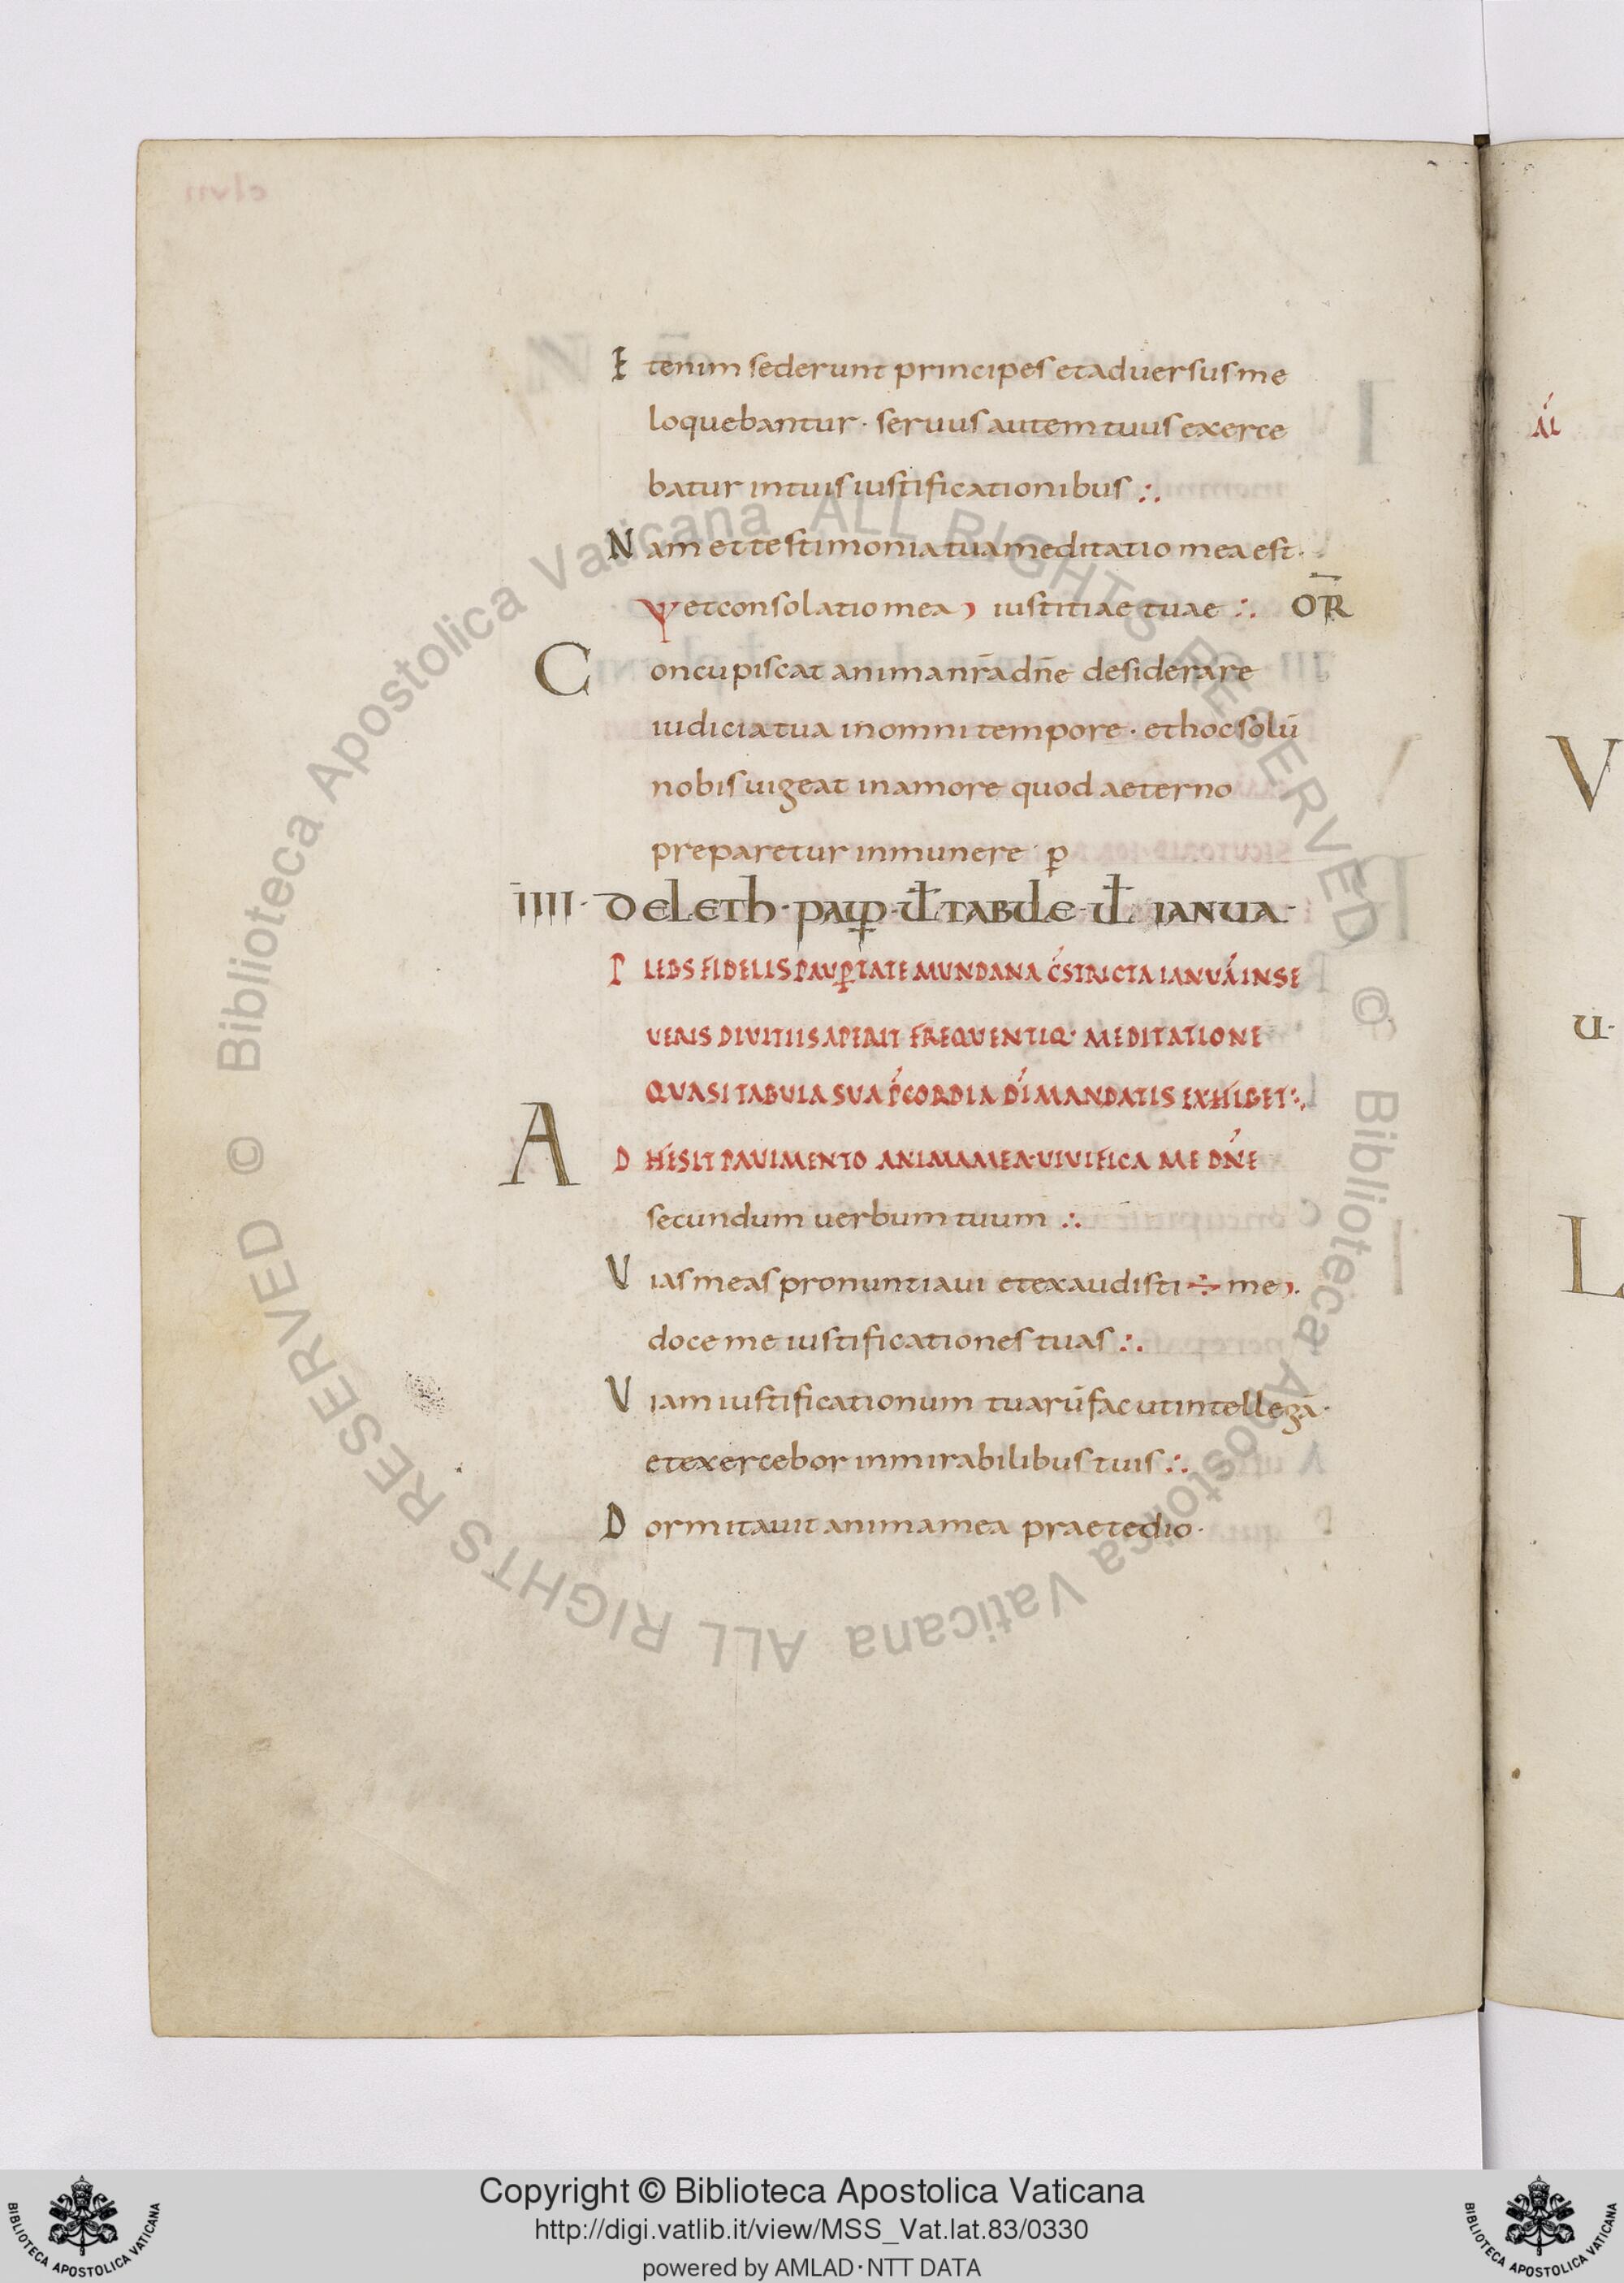 Etenim sederunt principes et aduersus me
loquebantur · seruus autem tuus exerce
batur in tuis iustificationibus ∴
Nam et testimonia tua meditatio mea est ·
ѱ et consolatio mea ) iustitiae tuae ∴ OR̄
Concupiscat anima nr̄a dn̄e desiderare
iudicia tua in omni tempore · et hoc solū
nobis uigeat in amore quod aeterno
preparetur in munere · p̲
IIII · DELETH · PAUP̲ · UŁ TABULE · UŁ IANUA ·
PLEBS FIDELIS PAUP̲TATE MUNDANA C̄STRICTA IANUĀ IN SE
UERIS DIUITIIS APERIT FREQUENTIQ· MEDITATIONE
QUASI TABULA SUA P̄CORDIA DĪ MANDATIS EXHIBET ∴
ADHESIT PAUIMENTO ANIMA MEA · UIUIFICA ME DN̄E
secundum uerbum tuum ∴
Uias meas pronuntiaui et exaudisti ÷ me ) ·
doce me iustificationes tuas ∴
Uiam iustificationum tuarū fac ut intellegā ·
et exercebor in mirabilibus tuis ∴
Dormitauit anima mea prae tedio ·
AĪ
V
U ·
L
Biblioteca Apostolica Vaticana ALL RIGHTS RESERVED ©
Biblioteca Apostolica Vaticana ALL RIGHTS RESERVED ©
Copyright © Biblioteca Apostolica Vaticana
http://digi.vatlib.it/view/MSS_Vat.lat.83/0330
powered by AMLAD · NTT DATA
BIBLIOTECA APOSTOLICA VATICANA
BIBLIOTECA APOSTOLICA VATICANA